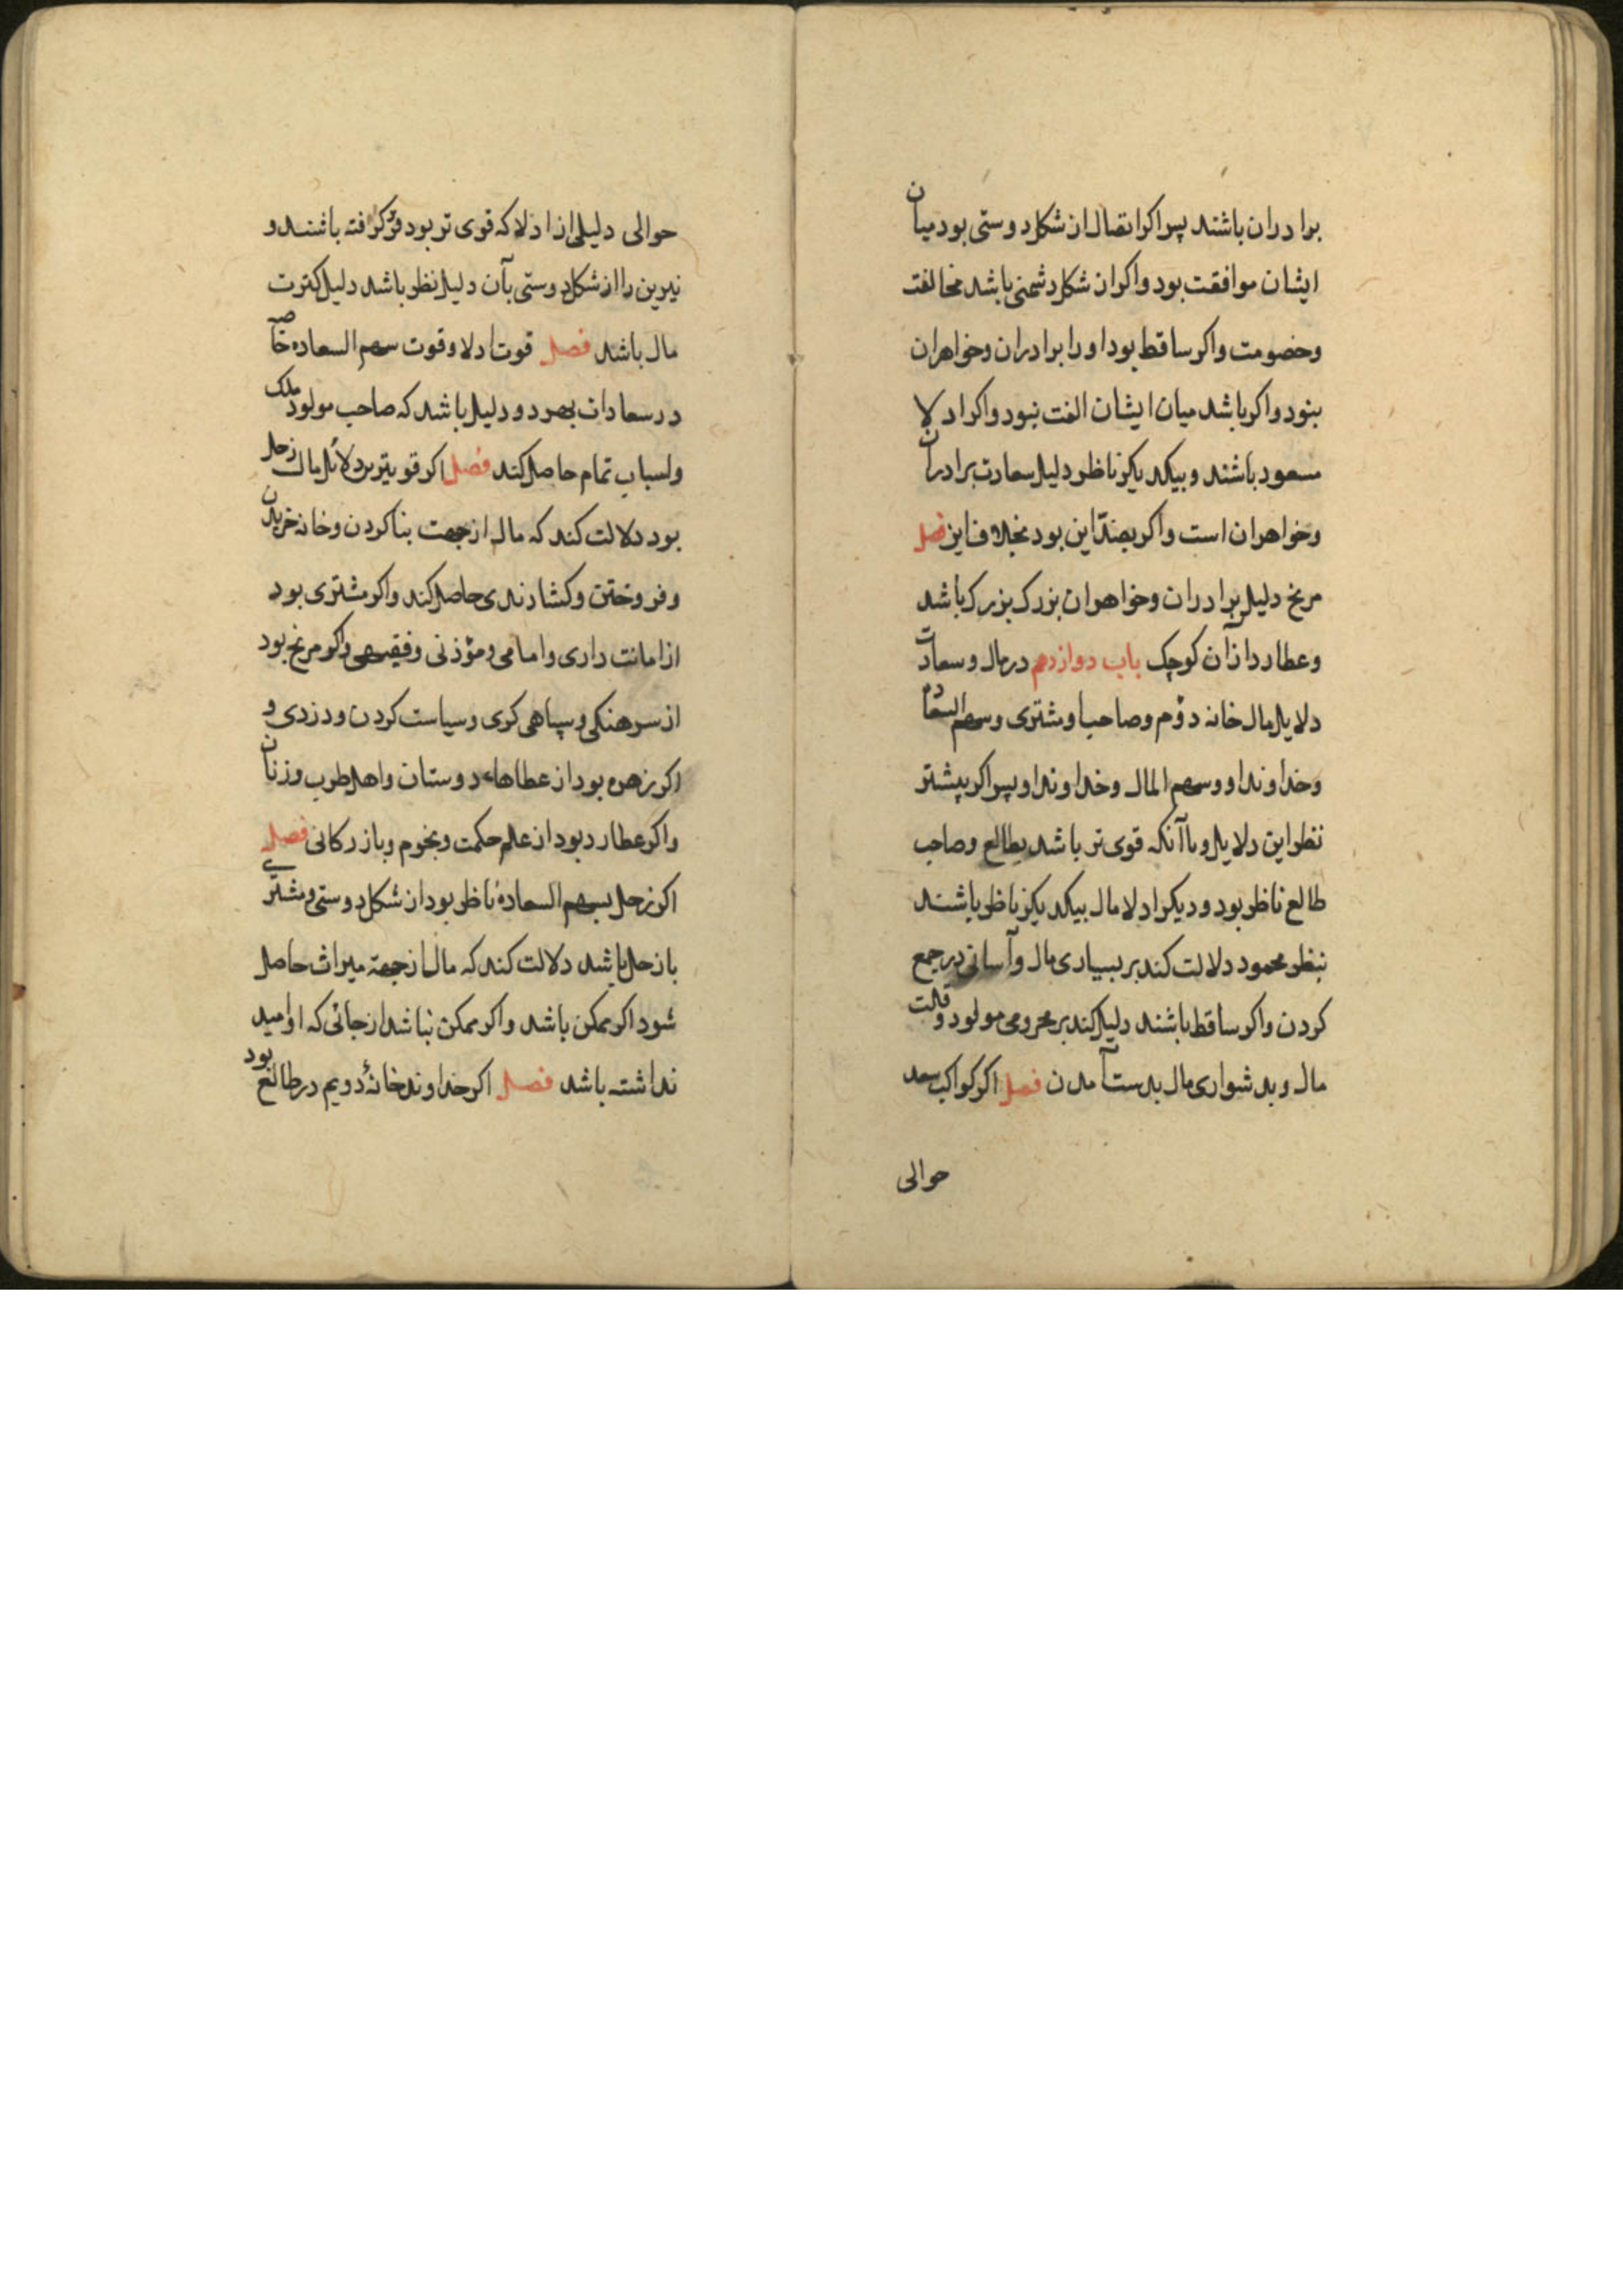 برادران باشند پس اکر اتصال از شکل دوستی بود میان
ایشان موافقت بود واکر از شکل دشمنی باشد مخالفت
وخصومت واکر ساقط بود اورا برادران وخواهران
بنود واکر باشد میان ایشان الفت نبود واکر ادلا
مسعود باشند وبیکدیکر ناظر دلیل سعادت برادران
وخواهران است واکر بضد این بود بخلاف این فصل
مریخ دلیل برادران وخواهران بزرک بزرک باشد
وعطارد ازآن کوچک باب دوازدهم در مال وسعادت
دلایل مال خانه دوّم وصاحب او مشتری وسهم السعاده
وخداوند او وسهم المال وخداوند او پس اکر بیشتر
نظر این دلایل وباآنکه قوی تر باشد بطالع وصاحب
طالع ناظر بود ودیکر ادلا مال بیکدیکر ناظر باشند
بنظر محمود دلالت کند بر بسیاری مال وآسانی در جمع
کردن واکر ساقط باشند دلیل کند بر محرومی مولود وقلت
مال وبدشواری مال بدست آمدن فصل اکر کواکب سعد
حوالی
حوالی دلیلی از ادلا که قوی تر بود فرو کرفته باشند و
نیرین را از شکل دوستی بآن دلیل نظر باشد دلیل کثرت
مال باشد فصل قوت ادلا وقوت سهم السعاده خاصه
در سعادات بهر دو دلیل باشد که صاحب مولود ملک
واسباب تمام حاصل کند فصل اکر قویترین دلائل مال زحل
بود دلالت کند که مال از جهت بنا کردن وخانه خریدن
وفروختن وکشادندی حاصل کند واکر مشتری بود
از امانت داری وامامی ومؤذنی وفقیهی واکر مریخ بود
از سرهنکی وسپاهی کری وسیاست کردن ودزدی و
اکر زهره بود از عطاهاء دوستان واهل طرب وزنان
واکر عطارد بود از علم حکمت ونجوم وبازرکانی فصل
اکر زحل بسهم السعادة ناظر بود از شکل دوستی ومشتری
بازحل باشد دلالت کند که مال از جهة میراث حاصل
شود اکر ممکن باشد واکر ممکن نباشد از جائی که او امید
نداشته باشد فصل اکر خداوند خانهٔ دویم در طالع بود